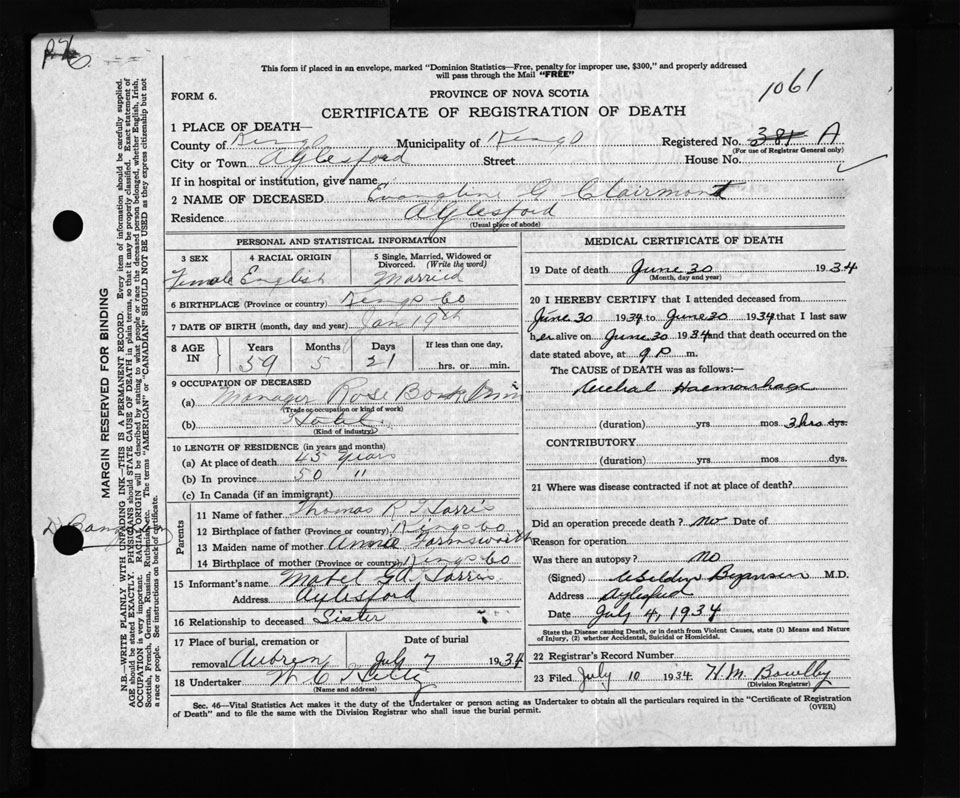 This form if placed in an envelope, marked "Dominion Statistics—Free, penalty for improper use, $300," and properly addressed
will pass through the Mail "FREE"
1061
FORM 6.
PROVINCE OF NOVA SCOTIA
CERTIFICATE OF REGISTRATION OF DEATH
MARGIN RESERVED FOR BINDING
N.B.—WRITE PLAINLY WITH UNFADING INK—THIS IS A PERMANENT RECORD. Every item of information should be carefully supplied.
AGE should be stated EXACTLY. PHYSICIANS should STATE CAUSE OF DEATH in plain terms, so that it may be properly classified. Exact statement of
OCCUPATION is very important. RACIAL ORIGIN will be described by stating to what people or race the deceased person belonged, whether English, Irish,
Scottish, French, German, Russian, Ruthenian, etc. The terms "AMERICAN" or "CANADIAN" SHOULD NOT BE USED as they express citizenship but not
a race or people. See instructions on back of certificate.
1 PLACE OF DEATH—
County of Kings Municipality of Kings Registered No. 381 A
(For use of Registrar General only)
City or Town Aylesford Street House No.
If in hospital or institution, give name
2 NAME OF DECEASED Evangeline G Clairmont
Residence Aylesford
(Usual place of abode)
PERSONAL AND STATISTICAL INFORMATION
3 SEX 4 RACIAL ORIGIN 5 Single, Married, Widowed or Divorced. (Write the word)
Female English Married
6 BIRTHPLACE (Province or country) Kings Co
7 DATE OF BIRTH (month, day and year) Jan 19th
8 AGE IN Years Months Days If less than one day,
59 5 21 hrs. or min.
9 OCCUPATION OF DECEASED
(a) Manager Rose
(Trade or occupation or kind of work)
(b) Hotel
(Kind of industry)
10 LENGTH OF RESIDENCE (in years and months)
(a) At place of death 45 years
(b) In province 50 "
(c) In Canada (if an immigrant)
Parents
11 Name of father Thomas R Harris
12 Birthplace of father (Province or country) Kings Co
13 Maiden name of mother Annie Farnsworth
14 Birthplace of mother (Province or country) Kings Co
15 Informant's name Mabel Harris
Address Aylesford
16 Relationship to deceased Sister
17 Place of burial, cremation or Date of burial
removal July 7 1934
18 Undertaker W C
(Name and address)
MEDICAL CERTIFICATE OF DEATH
19 Date of death June 30 1934
(Month, day and year)
20 I HEREBY CERTIFY that I attended deceased from
June 30 1934 to June 30 1934 that I last saw
her alive on June 30 1934 and that death occurred on the
date stated above, at 9 P. m.
The CAUSE of DEATH was as follows:—
Haemorrhage
(duration) yrs mos 3 hrs dys.
CONTRIBUTORY
(duration) yrs mos dys.
21 Where was disease contracted if not at place of death?
Did an operation precede death? No Date of
Reason for operation
Was there an autopsy? No
(Signed) M.D.
Address Aylesford
Date July 4, 1934
State the Disease causing Death, or in death from Violent Causes, state (1) Means and Nature
of Injury, (2) whether Accidental, Suicidal or Homicidal.
22 Registrar's Record Number
23 Filed July 10 1934 H. M.
(Division Registrar)
Sec. 46—Vital Statistics Act makes it the duty of the Undertaker or person acting as Undertaker to obtain all the particulars required in the "Certificate of Registration
of Death" and to file the same with the Division Registrar who shall issue the burial permit.
(OVER)